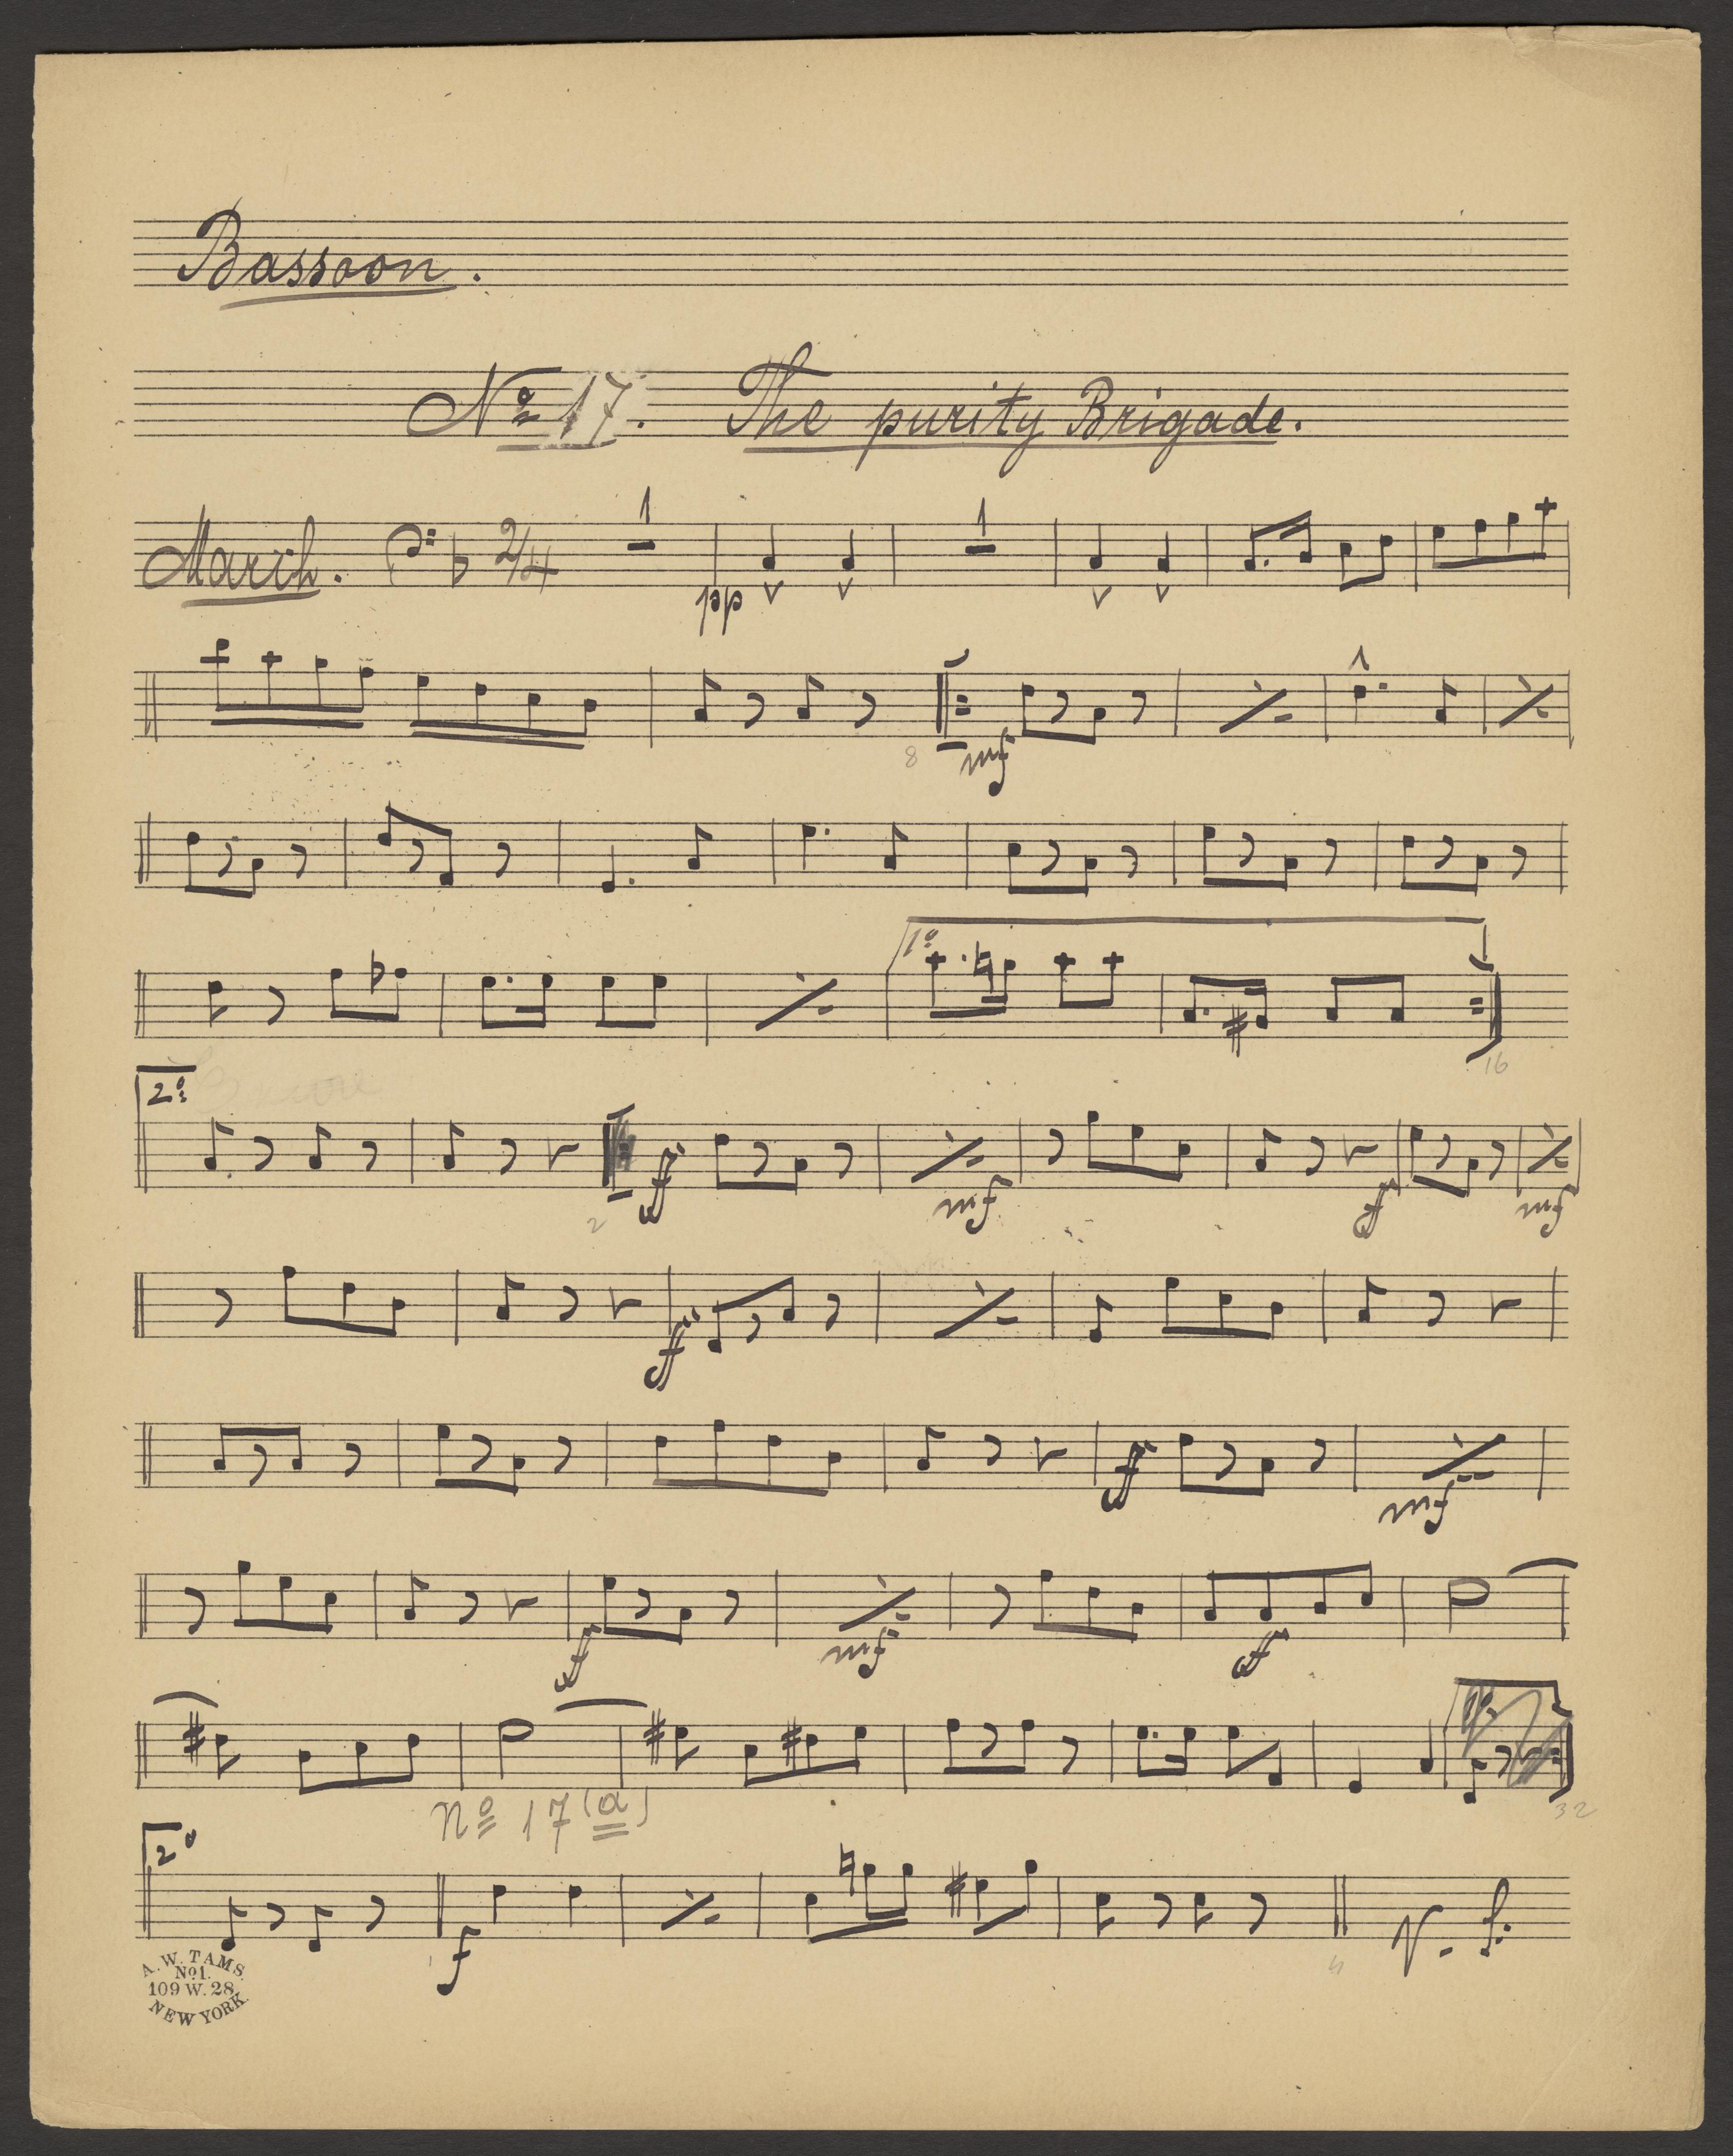 Bassoon.
Nº 17. The purity Brigade.
March. 2/4 1 1
pp
8 mf
1º
16
2º
2 ff mf ff mf
ff
ff mf
ff mf ff
1º
Nº 17 (a) 32
2º
f 4 V. S.
A. W. TAMS.
No 1.
109 W. 28.
NEW YORK.